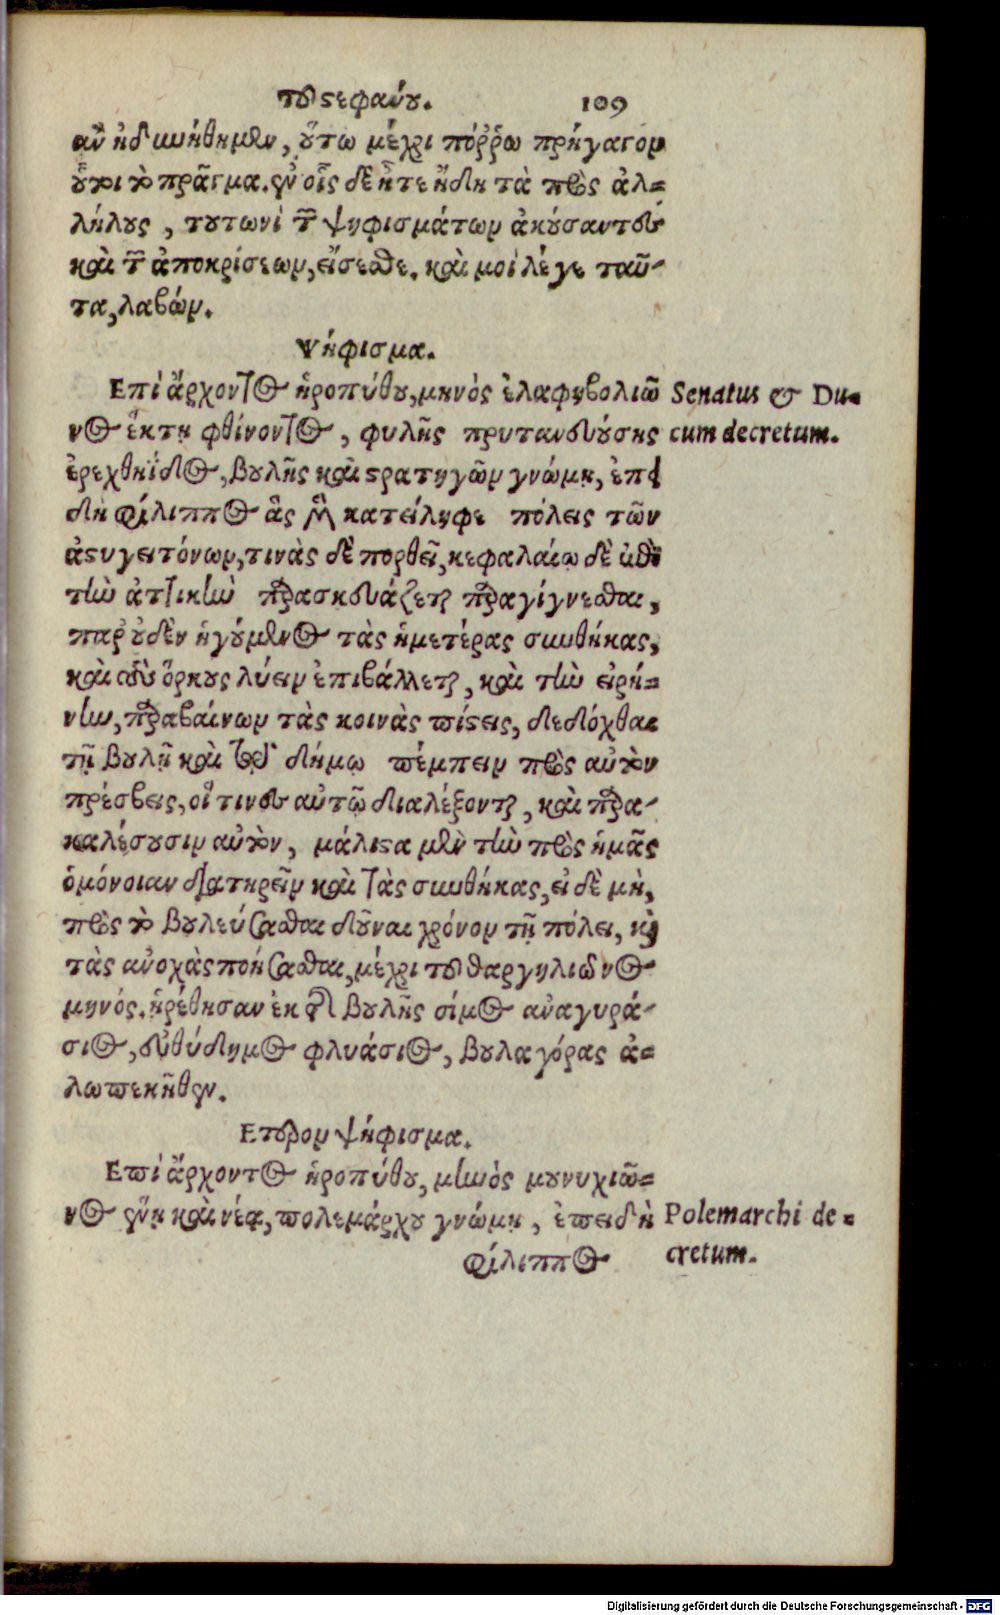 τοῦ στεφάνου. 109
ἂν ἠδυνήθημεν, οὕτω μέχρι πόῤῥω πρήγαγον
οὗτοι τὸ πρᾶγμα. ἐν οἷς δὲ ἦτε ἤδη τὰ πρὸς ἀλ=
λήλους, τουτωνὶ τῶν ψηφισμάτων ἀκούσαντες
καὶ τῶν ἀποκρίσεων, εἴσεσθε. καὶ μοι λέγε ταῦ-
τα, λαβών.
Ψήφισμα.
Επὶ ἄρχοντος ἡροπύθου, μηνὸς ἐλαφηβολιῶ Senatus & Du=
νος ἕκτῃ φθίνοντος, φυλῆς πρυτανευούσης cum decretum.
ἐρεχθηΐδος, βουλῆς καὶ στρατηγῶν γνώμῃ, ἐπει
δὴ φίλιππος ἃς μὲν κατείληφε πόλεις τῶν
ἀστυγειτόνων, τινὰς δὲ πορθεῖ, κεφαλαίῳ δὲ ἐπὶ
τὴν ἀττικὴν παρασκευάζεται παραγίγνεσθαι,
παρ' οὐδὲν ἡγούμενος τὰς ἡμετέρας συνθήκας,
καὶ τοὺς ὅρκους λύειν ἐπιβάλλεται, καὶ τὴν εἰρή=
νην, παραβαίνων τὰς κοινὰς πίστεις, δεδόχθαι
τῇ βουλῇ καὶ τῷ δήμῳ πέμπειν πρὸς αὐτὸν
πρέσβεις, οἵ τινες αὐτῷ διαλέξονται, καὶ παρα-
καλέσουσιν αὐτὸν, μάλιστα μὲν τὴν πρὸς ἡμᾶς
ὁμόνοιαν διατηρεῖν καὶ τὰς συνθήκας, εἰ δὲ μὴ,
πρὸς τὸ βουλεύσασθαι δοῦναι χρόνον τῇ πόλει, καὶ
τὰς ἀνοχὰς ποιήσασθαι, μέχρι τοῦ θαργηλιῶνος
μηνός. ἡρέθησαν ἐκ τῆς βουλῆς σίμος ἀναγυρά-
σιος, εὐθύδημος φλυάσιος, βουλαγόρας ἀ=
λωπεκῆθεν.
Ετερον ψήφισμα.
Επὶ ἄρχοντος ἡροπύθου, μηνὸς μουνυχιῶ=
νος ἕνῃ καὶ νέᾳ, πολεμάρχου γνώμῃ, ἐπειδὴ Polemarchi de=
φίλιππος cretum.
Digitalisierung gefördert durch die Deutsche Forschungsgemeinschaft - DFG